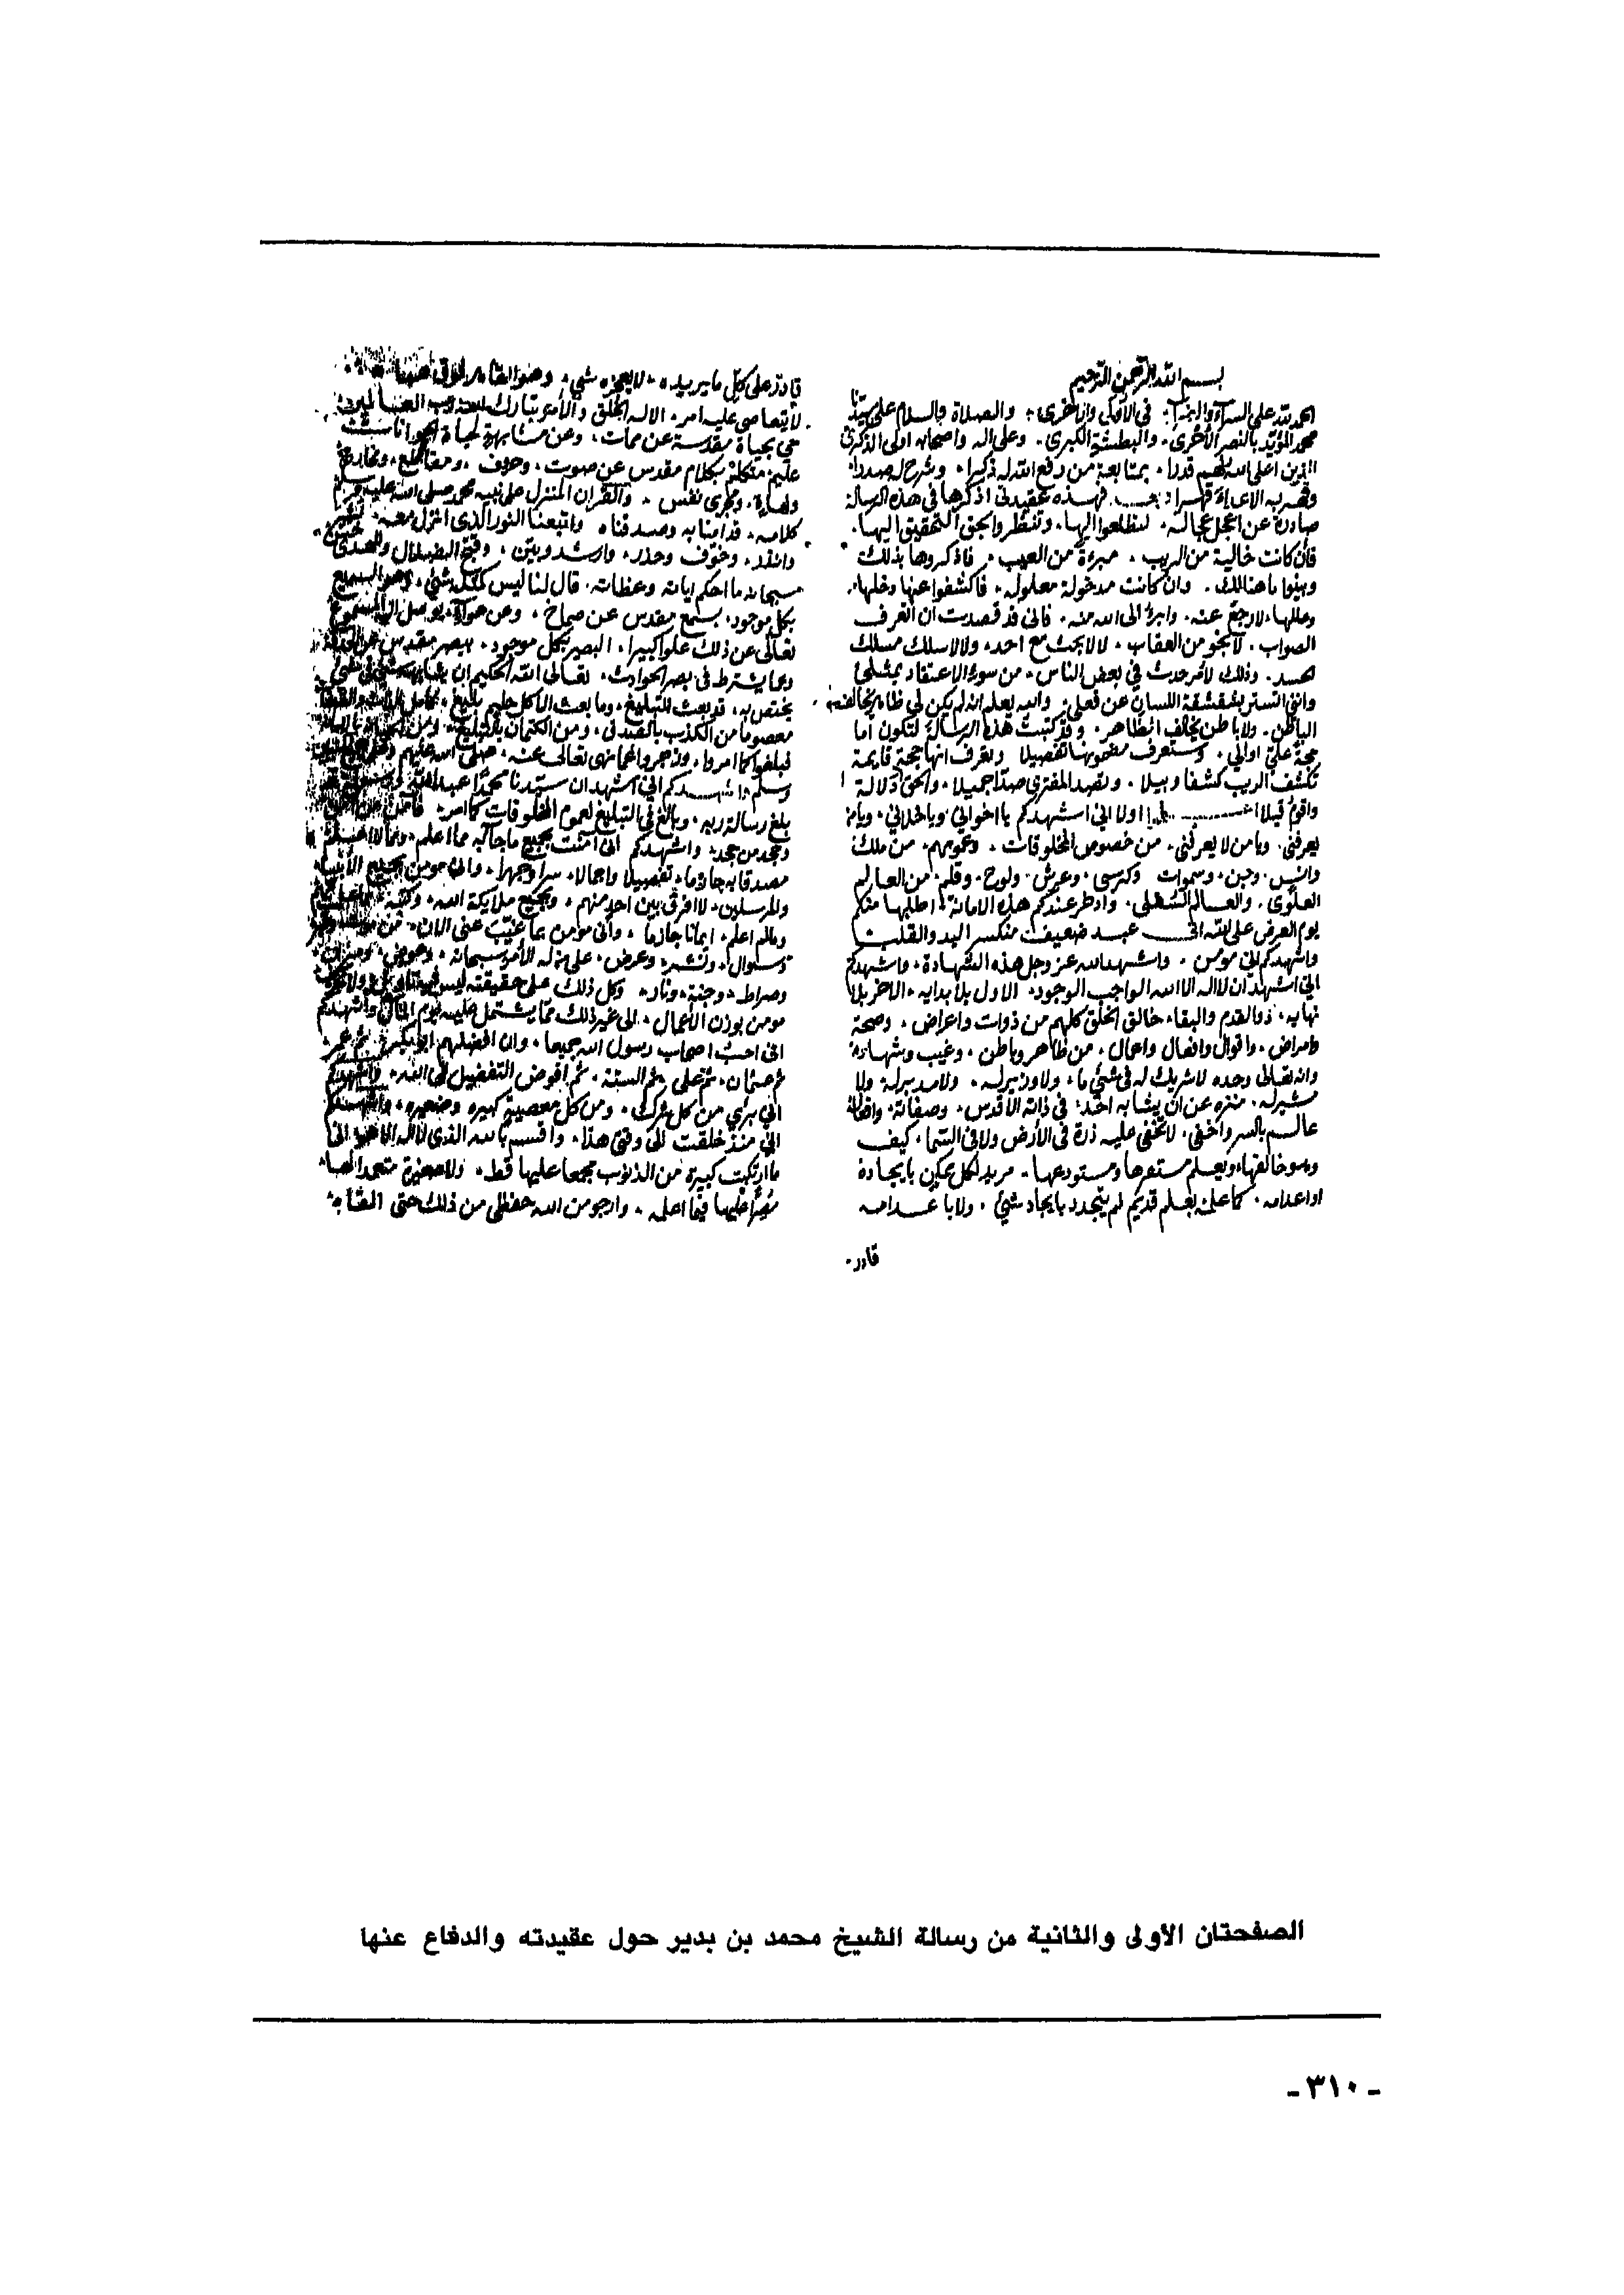 بسم الله الرحمن الرحيم
الحمد لله على السراء والضراء. في الأولى والأخرى. والصلاة والسلام على سيدنا
محمد المؤيد بالنصر الأحرى. والبطشة الكبرى. وعلى اله واصحابه اولى الذكرى
الذين اعلى الله لهم قدرا. بمتابعة من رفع الله له ذكرا. وشرح له صدرا.
وقهر به الاعداء قهرا وبعد. فهذه عقيدتي اذكرها في هذه الرسالة
صادرة عن اعجل عجالة. لتطلعوا اليها. وتنظروا بحق التحقيق اليها.
فأن كانت خالية من الريب. مبرءة من العيب. فاذكروها بذلك
وبينوا ما هنالك. وان كانت مدخولة معلولة. فاكشفوا عنها دخلها.
وعللها. لارجع عنه. وابرؤ الى الله منه. فاني قد قصدت ان اعرف
الصواب. لانجو من العقاب. لا لابحث مع احد. ولا لاسلك مسلك
الحسد. وذلك لامر حدث في بعض الناس. من سوء الاعتقاد بمثلي
واني اتستر بشقشقة اللسان عن فعلي. والله يعلم انه لم يكن لي ظاهر يخالفه
الباطن. ولا باطن يخالف الظاهر. وقد كتبت هذه الرسالة لتكون اما
حجة علي او لي. وستعرف مضمونها تفصيلا وتعرف انها حجة قايمة
تكشف الريب كشفا وبيلا. وتصد المفترى صدا جميلا. والحق ادلالة
واقوم قيلا اولا اني اشهدكم يا اخواني ويا خلاني. ويا من
يعرفني. ويا من لا يعرفني. من خصوص المخلوقات. وعمومهم. من ملك
وانس. وجن. وسموات وكرسى. وعرش. ولوح. وقلم. من العالم
العلوى. والعالم السفلى. وادخر عندكم هذه الامانة. اطلبها منكم
يوم العرض على الله اني عبد ضعيف منكسر اليد والقلب
واشهدكم اني مومن. واشهد الله عز وجل هذه الشهادة. واشهدكم
اني اشهد ان لا اله الا الله الواجب الوجود. الاول بلا بدايه. الاخر بلا
نهايه. ذو القدم والبقاء. خالق الخلق كلهم من ذوات واعراض. وصحة
وامراض. واقوال وافعال واعمال. من ظاهر وباطن. وغيب وشهادة
وانه تعالى وحده لا شريك له في شئ ما. ولا وزير له. ولا مدبر له. ولا
مشير له. منزه عن ان يشابه احد. في ذاته الأقدس. وصفاته. وافعاله
عالم بالسر واخفى. لا تخفى عليه ذرة في الأرض ولا في السما. كيف
وهو خالقها. ويعلم مستقرها ومستودعها. مريد لكل ممكن بايجاده
او اعدامه. كما علمه بعلم قديم لم يتجدد بايجاد شئ. ولا باعدامه
قادر.
قادر على كل ما يريده. لا يعجزه شئ. وهو القاهر فوق
لا يتعاصى عليه امر. الا له الخلق والأمر تبارك الله رب العالمين
حي بحياة مقدسة عن ممات. وعن مشابهة لحياة الحيوانات
عليم. متكلم بكلام مقدس عن صوت. وحرف. ومقاطع. ومخارج
ولهاة. ومجرى نفس. والقران المنزل على نبيه محمد صلى الله عليه وسلم
كلامه. قد امنا به وصدقنا. واتبعنا النور الذى انزل معه.
وانذر. وخوف وحذر. وارشد وبين. وقبح الضلال والهدى
سبحانه ما احكم اياته وعظاته. قال لنا ليس كمثله شئ. وهو السميع
بكل موجود. بسمع مقدس عن صماخ. وعن هواء. يوصل المسموع
تعالى عن ذلك علوا كبيرا. البصير بكل موجود. ببصر مقدس عن
وعما يشترط في بصر الحوادث. تعالى الله الحكيم ان
يختص به. قد بعث للتبليغ. وما بعث الا كل حليم بليغ.
معصوما من الكذب بالصدق. ومن الكتمان بالتبليغ.
فبلغوا كما امروا. وزجروا عما نهى تعالى عنه. صلى الله عليهم
وسلم واشهدكم اني اشهد ان سيدنا محمدا عبد الله
بلغ رسالة ربه. وبالغ في التبليغ لعموم المخلوقات كما امر.
وجحد من جحد. واشهدكم اني امنت بجميع ما جآء به مما اعلم. ومما لا اعلم
مصدقا به جازما. تفصيلا واجمالا. سرا وجهرا. واني مومن بجميع الأنبياء
والمرسلين. لا افرق بين احد منهم. وبجميع ملايكة الله. وكتبه
ومالم اعلم. ايمانا جازما. واني مومن بما غيب عني الان. من
وسوال. ونشر. وعرض. على من له الأمر سبحانه. وحوض. وميزان
وصراط. وجنة. ونار. وكل ذلك على حقيقته ليس
مومن بوزن الأعمال. الى غير ذلك مما يشتمل عليه يوم المآل واشهدكم
اني احب اصحاب رسول الله جميعا. وان افضلهم ابو بكر. ثم عمر.
ثم عثمان. ثم علي. ثم الستة. ثم افوض التفضيل الى الله. واشهدكم
اني بري من كل شرك. ومن كل معصية كبيره وصغيره. واشهدكم
اني منذ خلقت الى وقتي هذا. واقسم بالله الذى لا اله الا هو اني
ما ارتكبت كبيرة من الذنوب مجمعا عليها قط. ولا صغيرة متعمدا لها
مصرا عليها فيما اعلم. وارجو من الله حفظى من ذلك حتى القاه
الصفحتان الأولى والثانية من رسالة الشيخ محمد بن بدير حول عقيدته والدفاع عنها
- ٣١٠ -